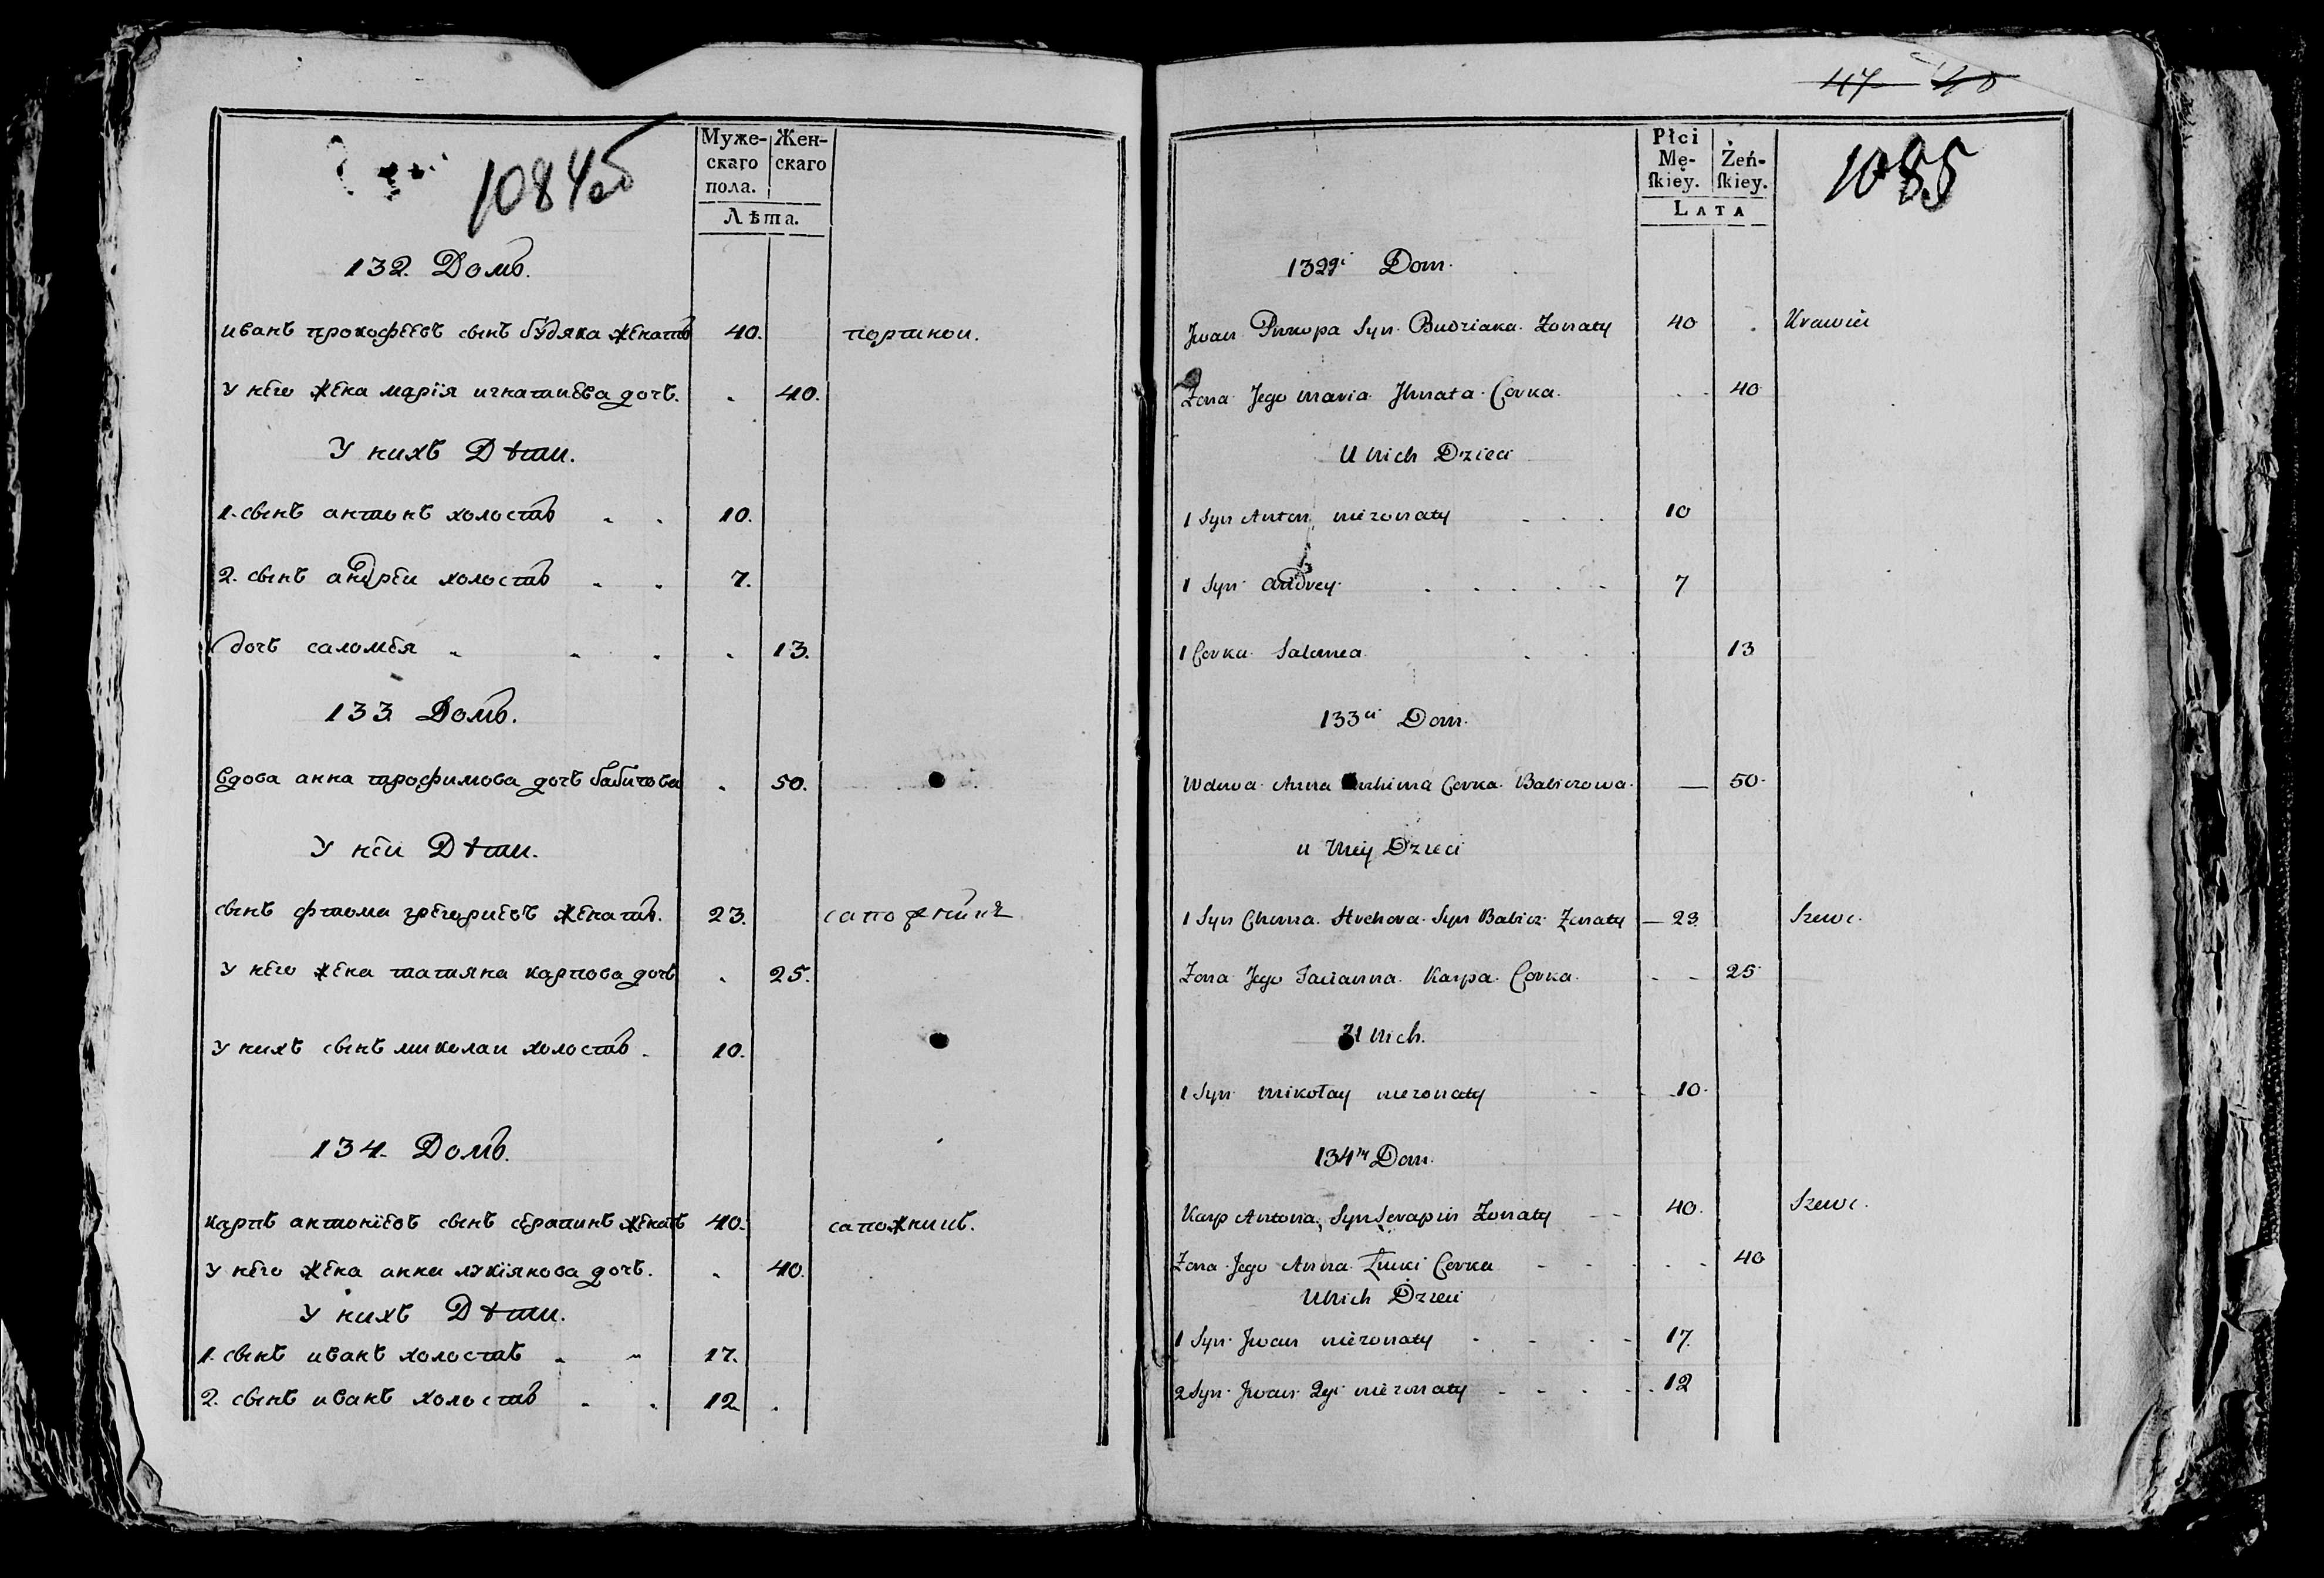 1084об
Муже-
скаго
пола.
Жен-
скаго
Лѣта.
132. Домъ.
иванъ прокофеевъ сынъ будяка женатъ 40. портнои.
У него жена марїя игнатиева дочь. 40.
У нихъ Дѣти.
1. сынъ антонъ холостъ 10.
2. сынъ андреи холостъ 7.
дочь саломея 13.
133. Домъ.
вдова анна трофимова дочь бабичова 50.
У неи Дѣти.
сынъ фтома грегориевъ женатъ. 23. сапожникъ
У него жена татияна карпова дочь 25.
У нихъ сынъ миколаи холостъ. 10.
134. Домъ.
карпъ антонїевъ сынъ серапинъ женатъ 40. сапожникъ.
У него жена анна лукїянова дочь. 40.
У нихъ Дѣти.
1. сынъ иванъ холостъ 17.
2. сынъ иванъ холостъ 12.
47 40
Płci
Mę-
ſkiey.
Żeń-
ſkiey.
LATA
1085
132gi Dom.
Jwan Prokopa Syn Budziaka Zonaty 40 Krawiec
Zona Jego Maria Jhnata Corka. 40
U Nich Dzieci
1 Syn Anton niezonaty 10
1 Syn Andrey 7
1 Corka Salomea 13
133ci Dom.
Wdowa Anna Corka Babiczowa. 50
u Niey Dzieci
1 Syn Choma Syn Babicz Zonaty 23. Szewc.
Zona Jego Tacianna Karpa Corka. 25
U Nich.
1 Syn Mikołay niezonaty 10
134ty Dom.
Karp Antona Syn Serapin Zonaty 40. Szewc.
Zona Jego Anna Łuki Corka 40
U Nich Dzieci
1 Syn Jwan niezonaty 17.
2 Syn Jwan 2gi niezonaty 12